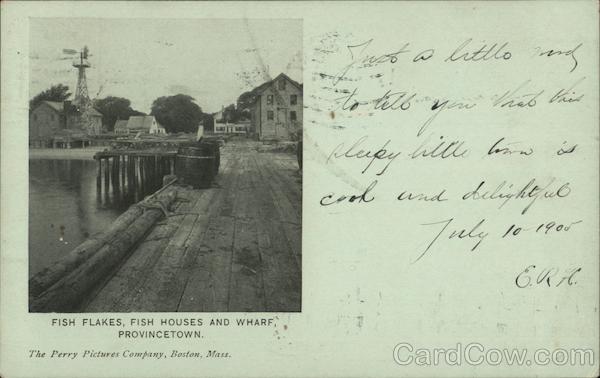 Just a little word
to tell you that this
sleepy little town is
cool and delightful
July 10-1905
E.R.H.
FISH FLAKES, FISH HOUSES AND WHARF,
PROVINCETOWN.
The Perry Pictures Company, Boston, Mass.
CardCow.com